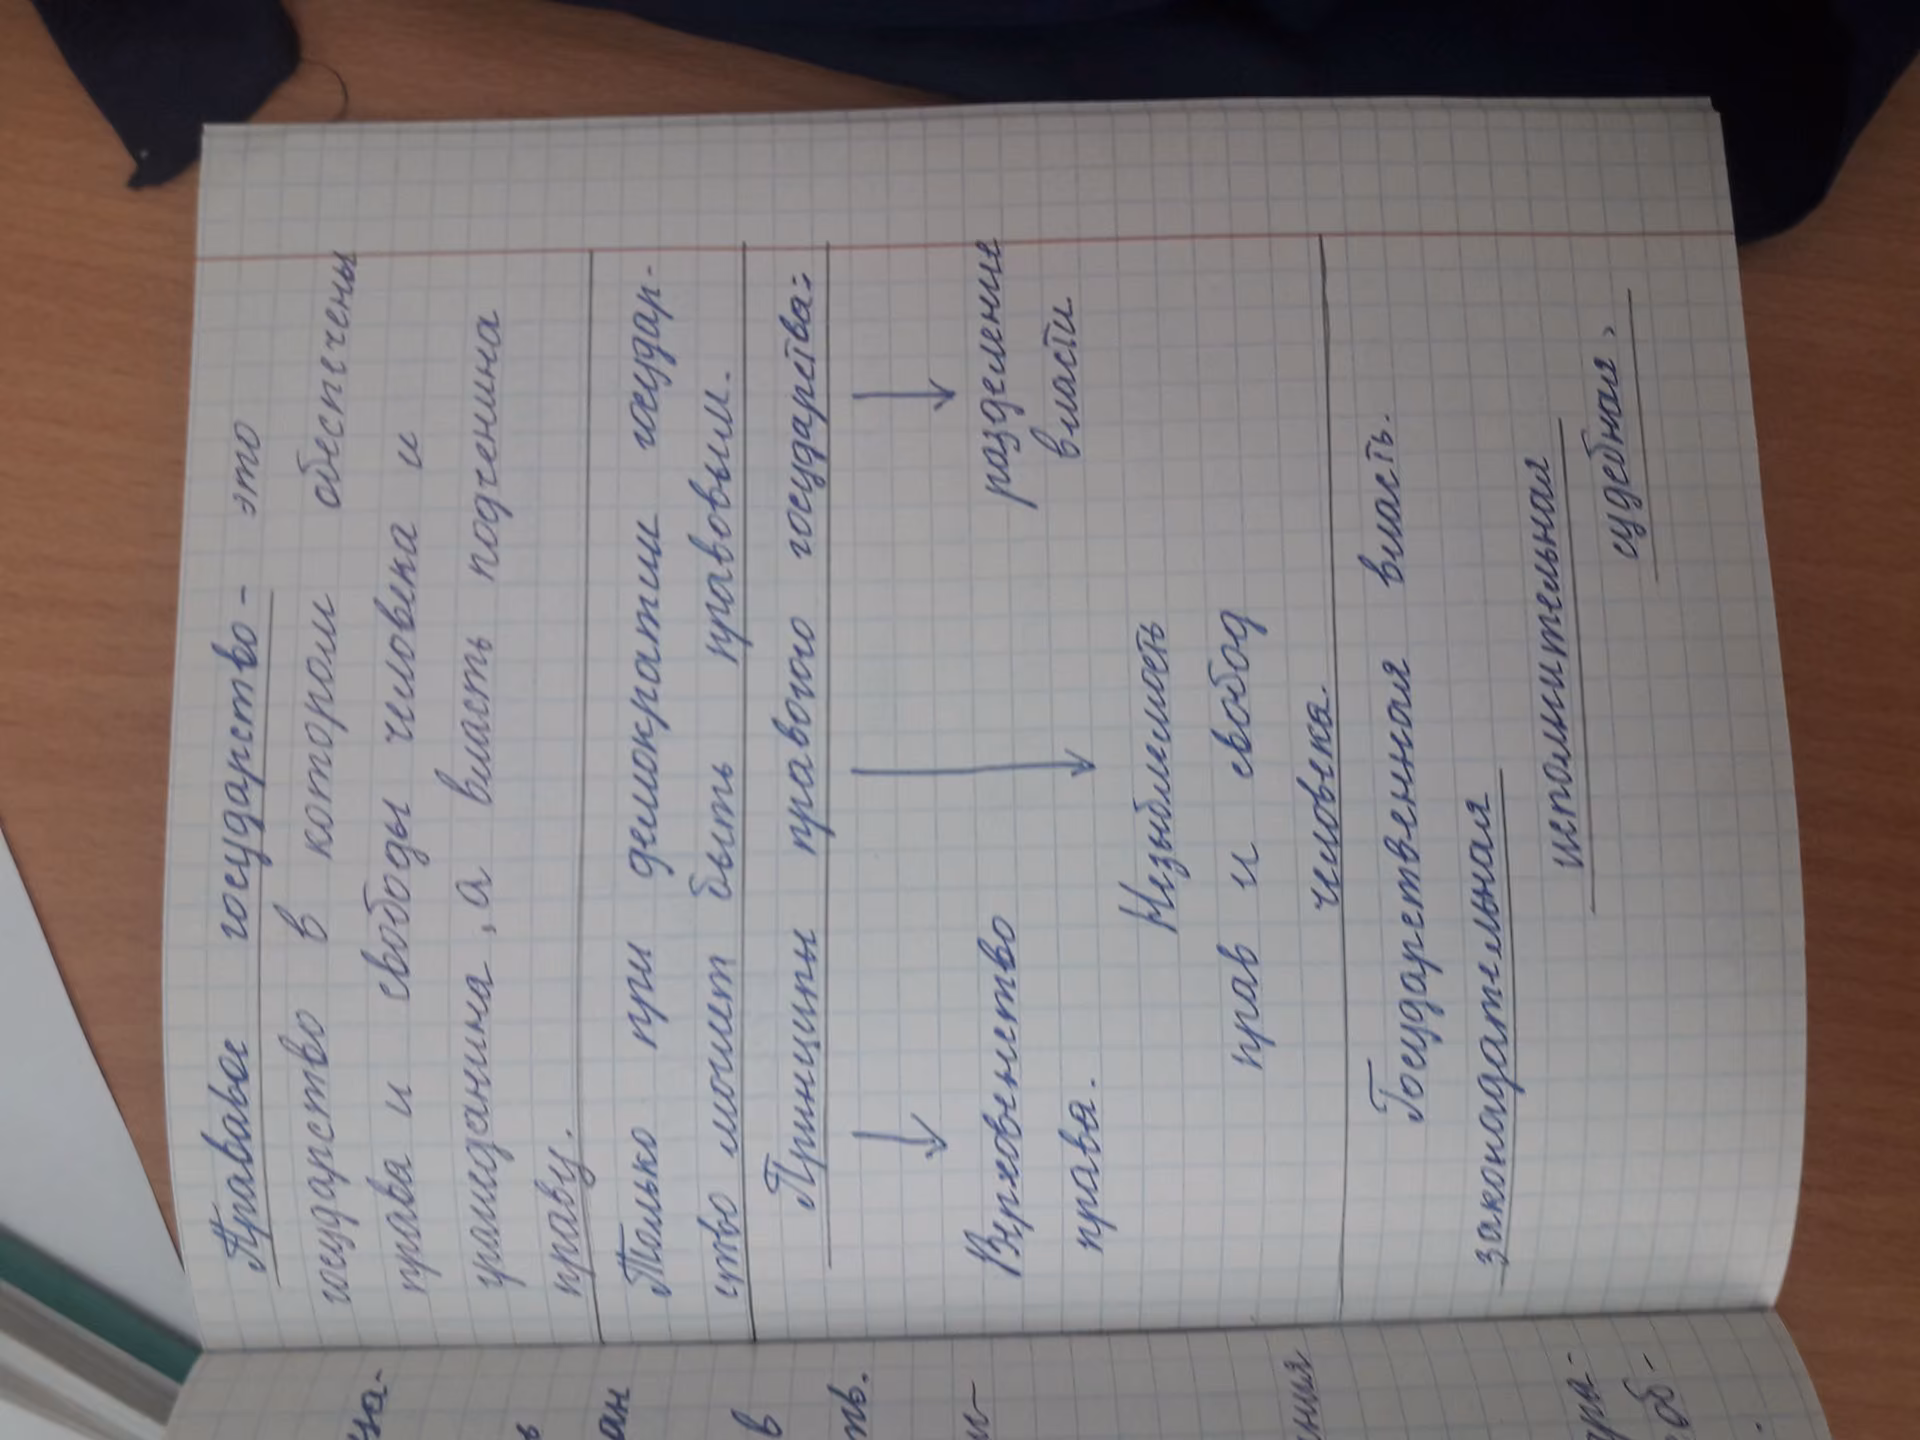 Правовое государство - это
государство в котором обеспечены
права и свободы человека и
гражданина, а власть подченина
праву.
Только при демократии государ-
ство может быть правовым.
Принципы правого государства:
Вирховенство
права.
разделение
власти
Незыблемость
прав и свобод
человека.
Государственная власть.
законадательная
исполнительная
судебная,
ца-
ь
ан
в
ть.
ния